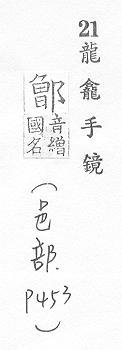 21龍龕手鏡
鄫
音繒
國名
(邑部.
P453)